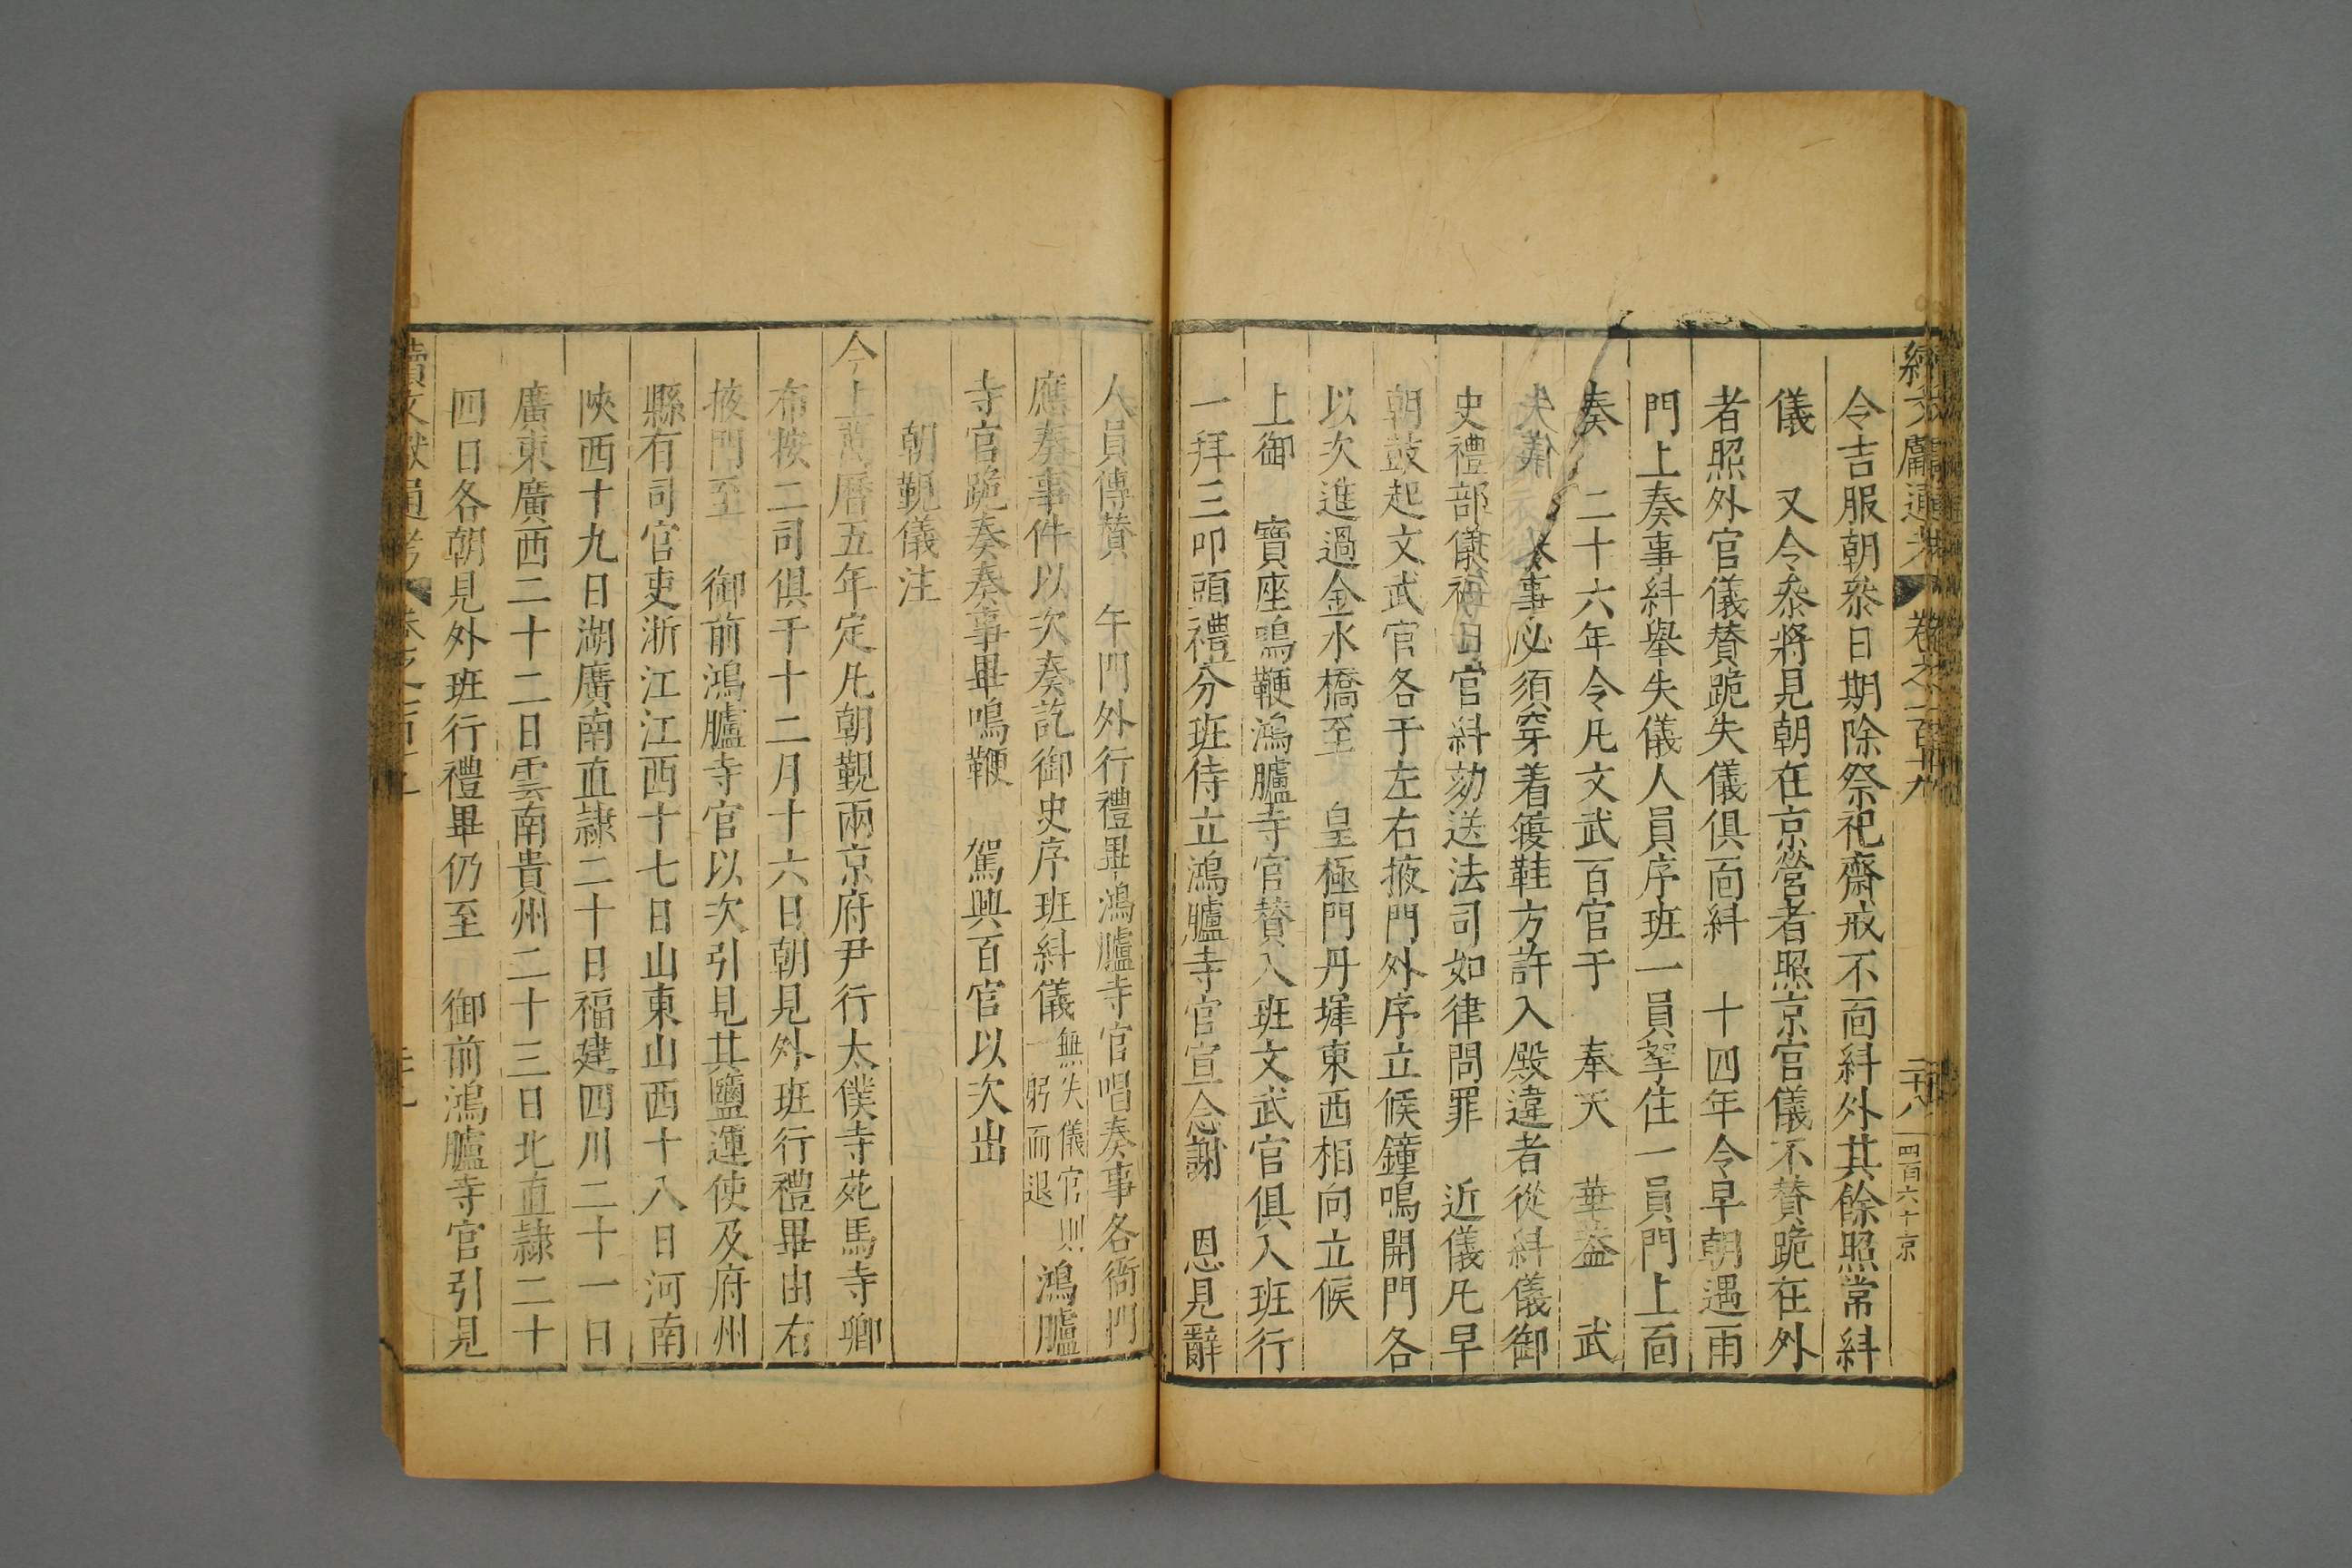 續文獻通考 卷之一百十九 二十八 四百六十 京
令吉服朝參日期除祭祀齋戒不面糾外其餘照常糾
儀 又令參將見朝在京營者照京官儀不贊跪在外
者照外官儀贊跪失儀俱面糾 十四年令早朝遇雨
門上奏事糾舉失儀人員序班一員拏住一員門上面
奏 二十六年令凡文武百官于 奉天 華蓋 武
事必須穿着𩌏鞋方許入殿違者從糾儀御
史禮部儀 官糾劾送法司如律問罪 近儀凡早
朝鼓起文武官各于左右掖門外序立候鐘鳴開門各
以次進過金水橋至 皇極門丹墀東西相向立候
上御 寶座鳴鞭鴻臚寺官贊入班文武官俱入班行
一拜三叩頭禮分班侍立鴻臚寺官宣念謝 恩見辭
人員傳贊 午門外行禮畢鴻臚寺官唱奏事各衙門
應奏事件以次奏訖御史序班糾儀無失儀官則一躬而退鴻臚
寺官跪奏奏事畢鳴鞭 駕興百官以次出
朝覲儀注
今上萬曆五年定凡朝覲兩京府尹行太僕寺苑馬寺卿
布按二司俱于十二月十六日朝見外班行禮畢由右
掖門至 御前鴻臚寺官以次引見其鹽運使及府州
縣有司官吏浙江江西十七日山東山西十八日河南
陝西十九日湖廣南直隸二十日福建四川二十一日
廣東廣西二十二日雲南貴州二十三日北直隸二十
四日各朝見外班行禮畢仍至 御前鴻臚寺官引見
續文獻通考